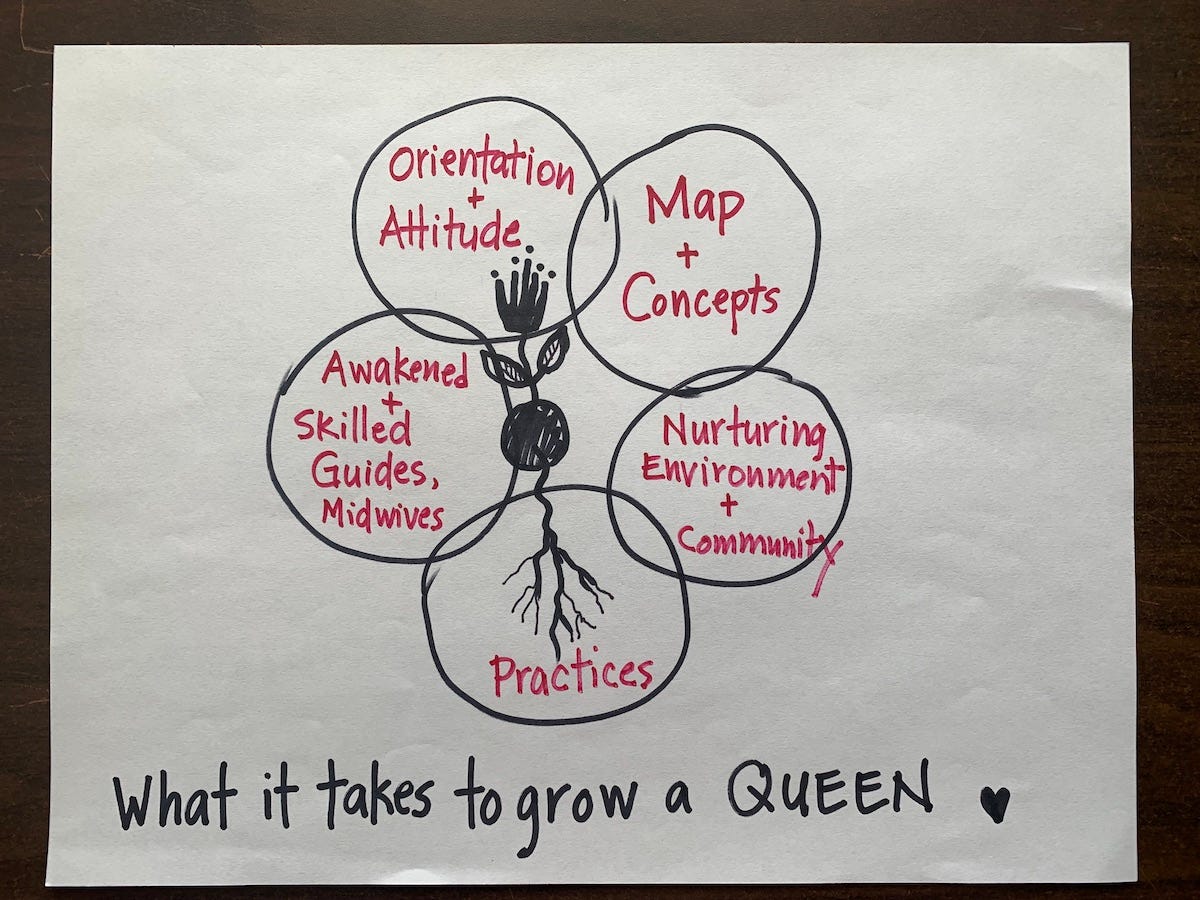 Orientation
+
Attitude
Map
+
Concepts
Awakened
+
Skilled
Guides,
Midwives
Nurturing
Environment
+
Community
Practices
What it takes to grow a QUEEN ♥